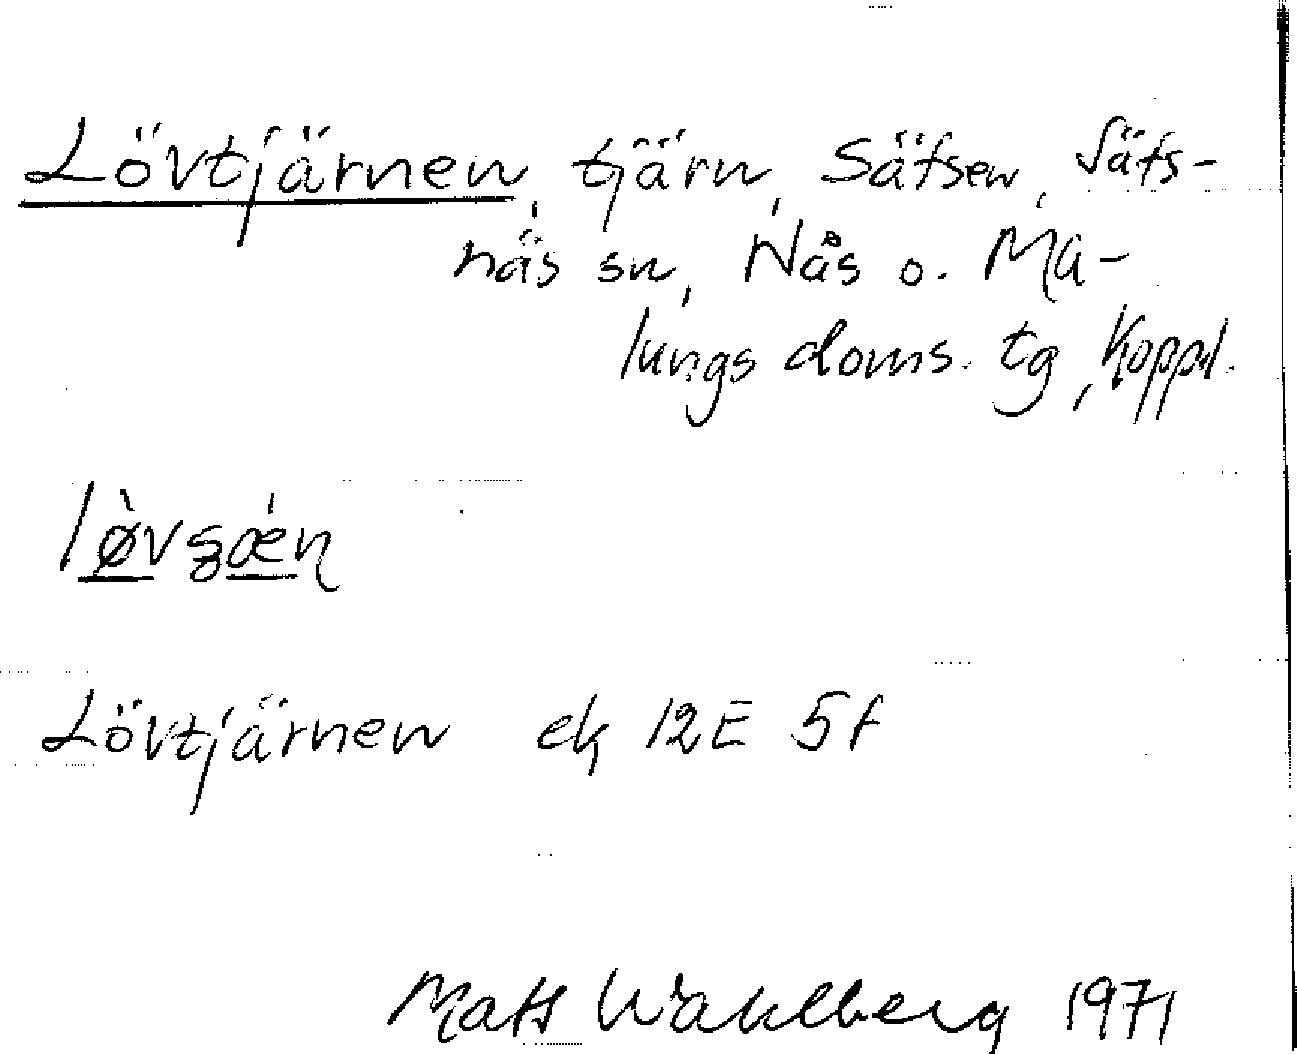 Lövtjärnen, tjärn, Säfsen, Säfs-
näs sn, Nås o. Ma-
lungs doms. tg, Koppl.
lø̀vʂǽɳ
Lövtjärnen ek 12E 5f
Mats Wahlberg 1971